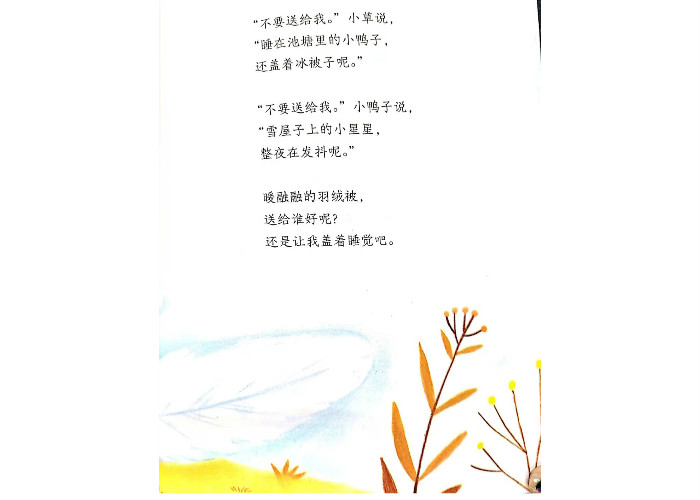 “不要送给我。”小草说，
“睡在池塘里的小鸭子，
还盖着冰被子呢。”
“不要送给我。”小鸭子说，
“雪屋子上的小星星，
整夜在发抖呢。”
暖融融的羽绒被，
送给谁好呢？
还是让我盖着睡觉吧。